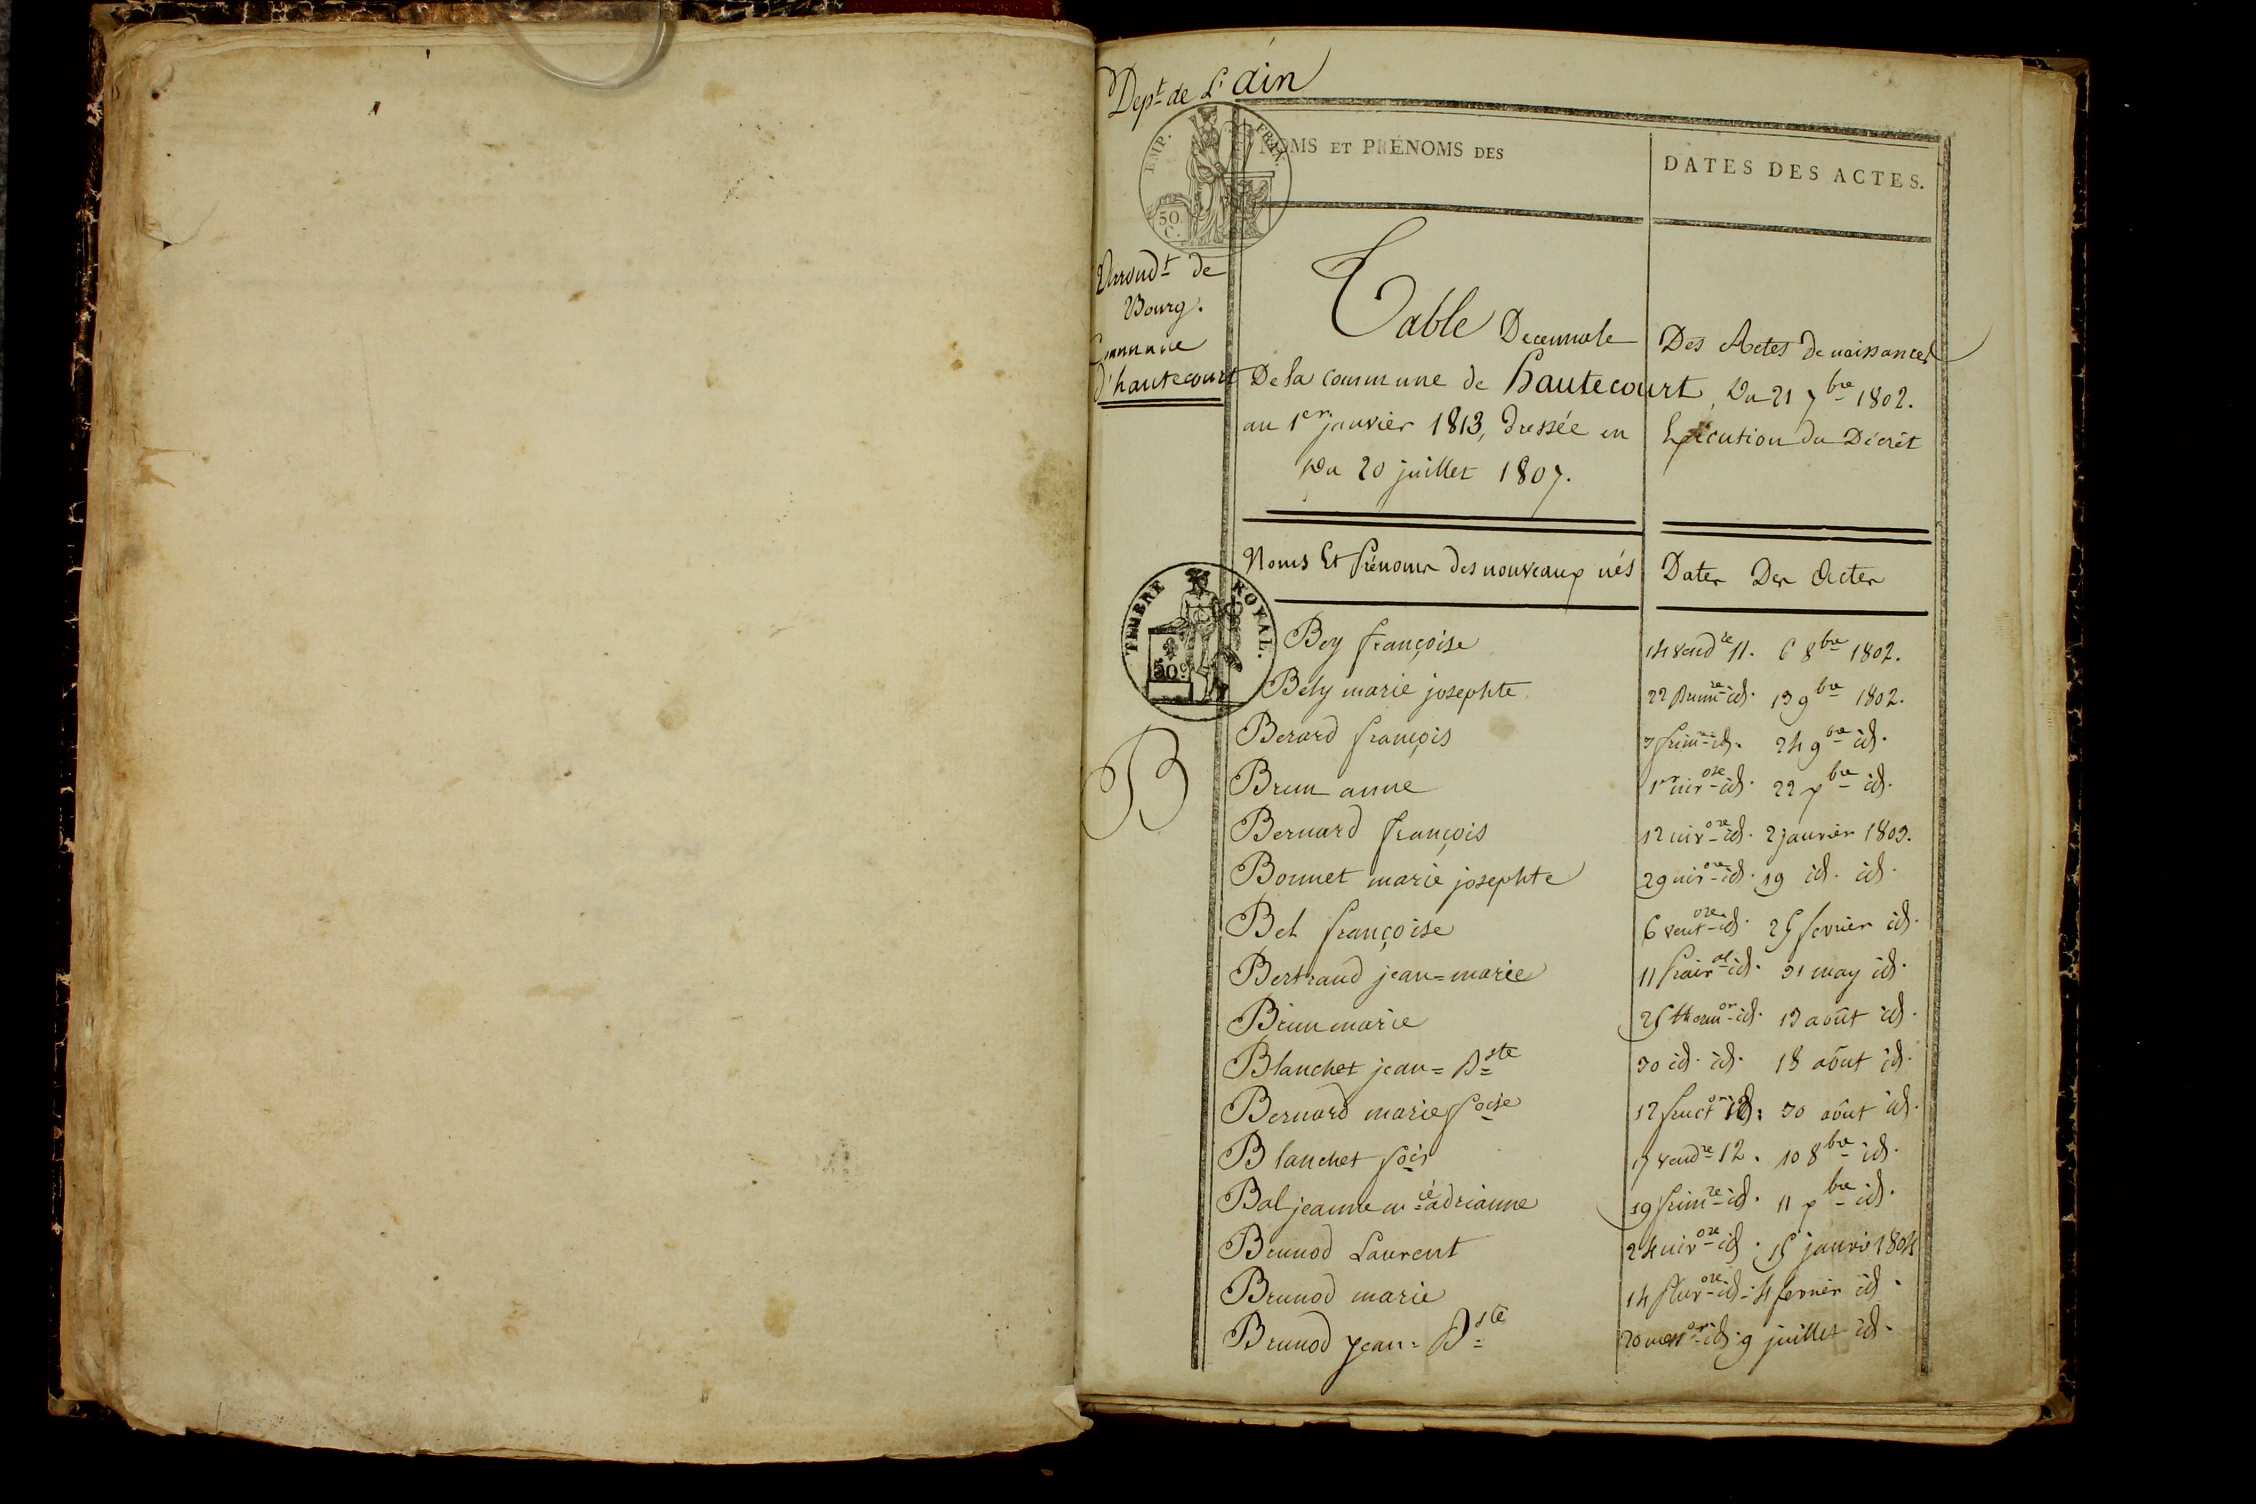 Dept de L'ain
EMP. FRAN.
50 C.
NOMS ET PRÉNOMS DES
DATES DES ACTES.
Arrondt de
Bourg.
Commune
d'hautecourt
Table Decennale Des Actes de naissances
De la commune de hautecourt, Du 21 7bre 1802.
au 1er janvier 1813, dressée en Execution du Décret
Du 20 juillet 1807.
Noms Et Prénoms des nouveaux nés Dates Des Actes
TIMBRE ROYAL.
50c
B
Bey françoise 14 vendre 11. 6 8bre 1802.
Bely marie josephte 22 brumre id. 13 9bre 1802.
Berard françois 3 frimre id. 24 9bre id.
Brun anne 1er nivose id. 22 xbre id.
Bernard françois 12 nivose id. 2 janvier 1803.
Bonnet marie josephte 29 nivose id. 19 id. id.
Bel françoise 6 ventose id. 25 fevrier id.
Bertrand jean=marie 11 prairal id. 31 may id.
Brun marie 25 thermor id. 13 août id.
Blanchet jean=Bste 30 id. id. 18 août id.
Bernard marie foise 12 fructor id. 30 août id.
Blanchet fois 17 vendre 12. 10 8bre id.
Bal jeanne mie adrianne 19 frimre id. 11 xbre id.
Brunod Laurent 24 nivose id. 15 janvr 1804
Brunod marie 14 pluvose id. 4 fevrier id.
Brunod jean=Bste 20 messor id. 9 juillet id.